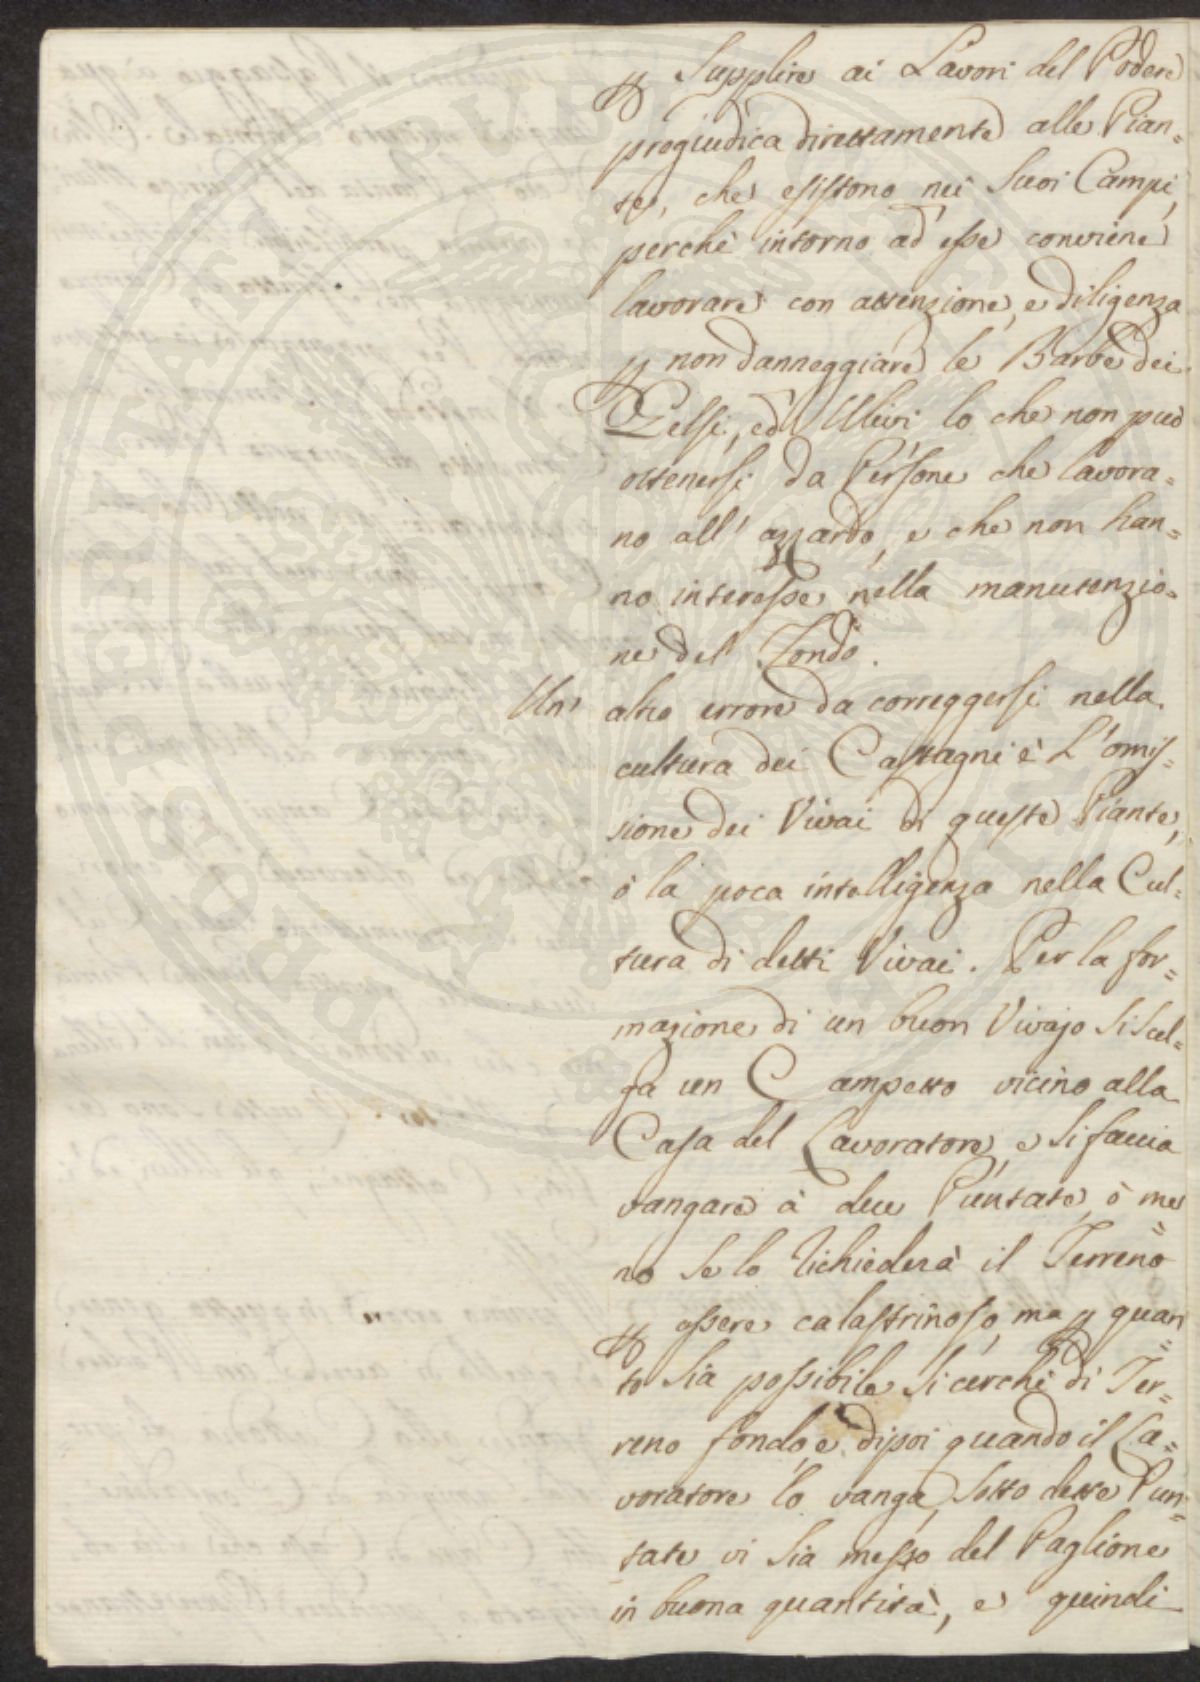 ꝑ Supplire ai Lavori del Podere
pregiudica direttamente alle Pian=
te, che esistono nei suoi Campi,
perchè intorno ad esse conviene
lavorare con attenzione, e diligenza
ꝑ non danneggiare le Barbe dei
Gelsi, ed Ulivi lo che non può
ottenersi da Persone che lavora=
no all' azzardo, e che non han=
no interesse nella manutenzio=
ne del Fondo.
Un' altro errore da correggersi nella
cultura dei Castagni è L'omis=
sione dei Vivai di queste Piante,
ò la poca intelligenza nella Cul=
tura di detti Vivai. Per la for=
mazione di un buon Vivajo si scel=
ga un Campetto vicino alla
Casa del Lavoratore, e si faccia
vangare à due Puntate, ò me=
no se lo richiederà il Terreno
ꝑ essere calastrinoso, ma ꝑ quan=
to sia possibile si cerchi di Ter=
reno fondo, e dipoi quando il La=
voratore lo vanga, sotto dette Pun=
tate vi sia messo del Paglione
in buona quantità, e quindi
PROSPERITATI PUBLICAE